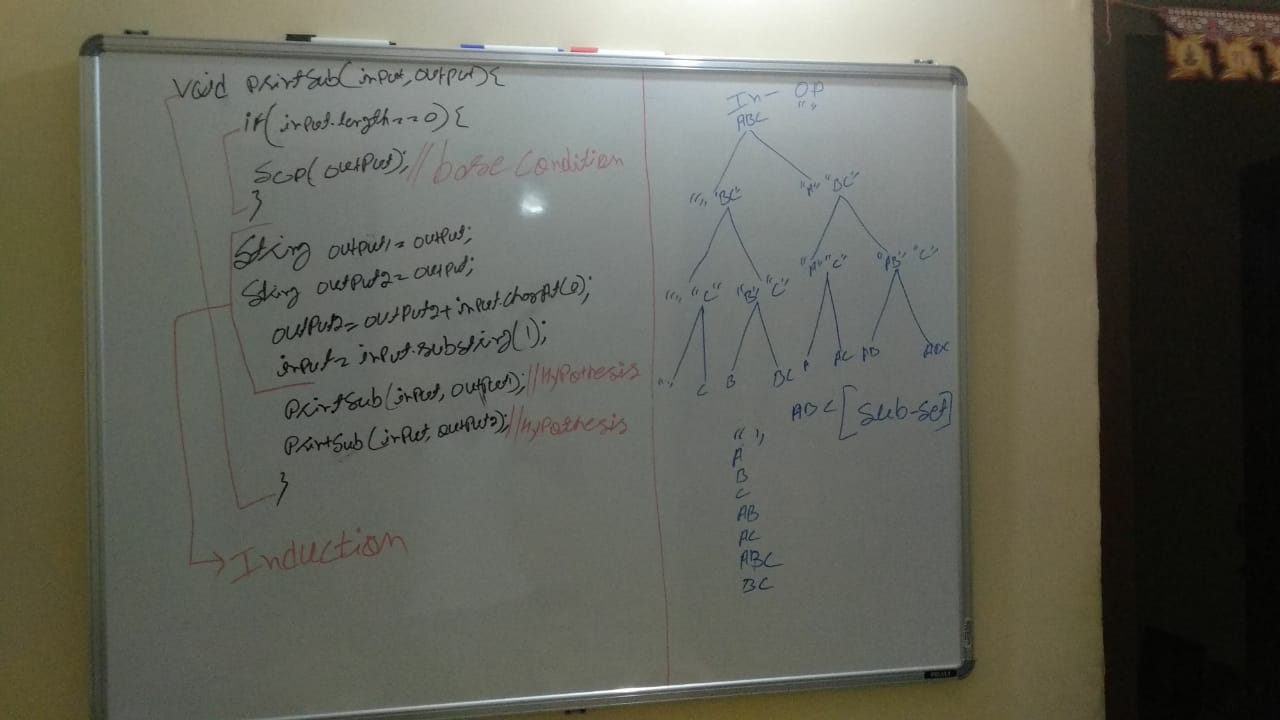 void printSub(input, output){
if(input.length==0){
Sop(output); //base condition
}
String output1 = output;
String output2 = output;
output2 = output2 + input.charAt(0);
input = input.substring(1);
printSub(input, output1); //Hypothesis
printSub(input, output2); //Hypothesis
}
Induction
In - OP
ABC " "
" " "BC" "A" "BC"
" " "C" "B" "C" "A" "C" "AB" "C"
" " C B BC A AC AB ABC
ABC [Sub-set]
" "
A
B
C
AB
AC
ABC
BC